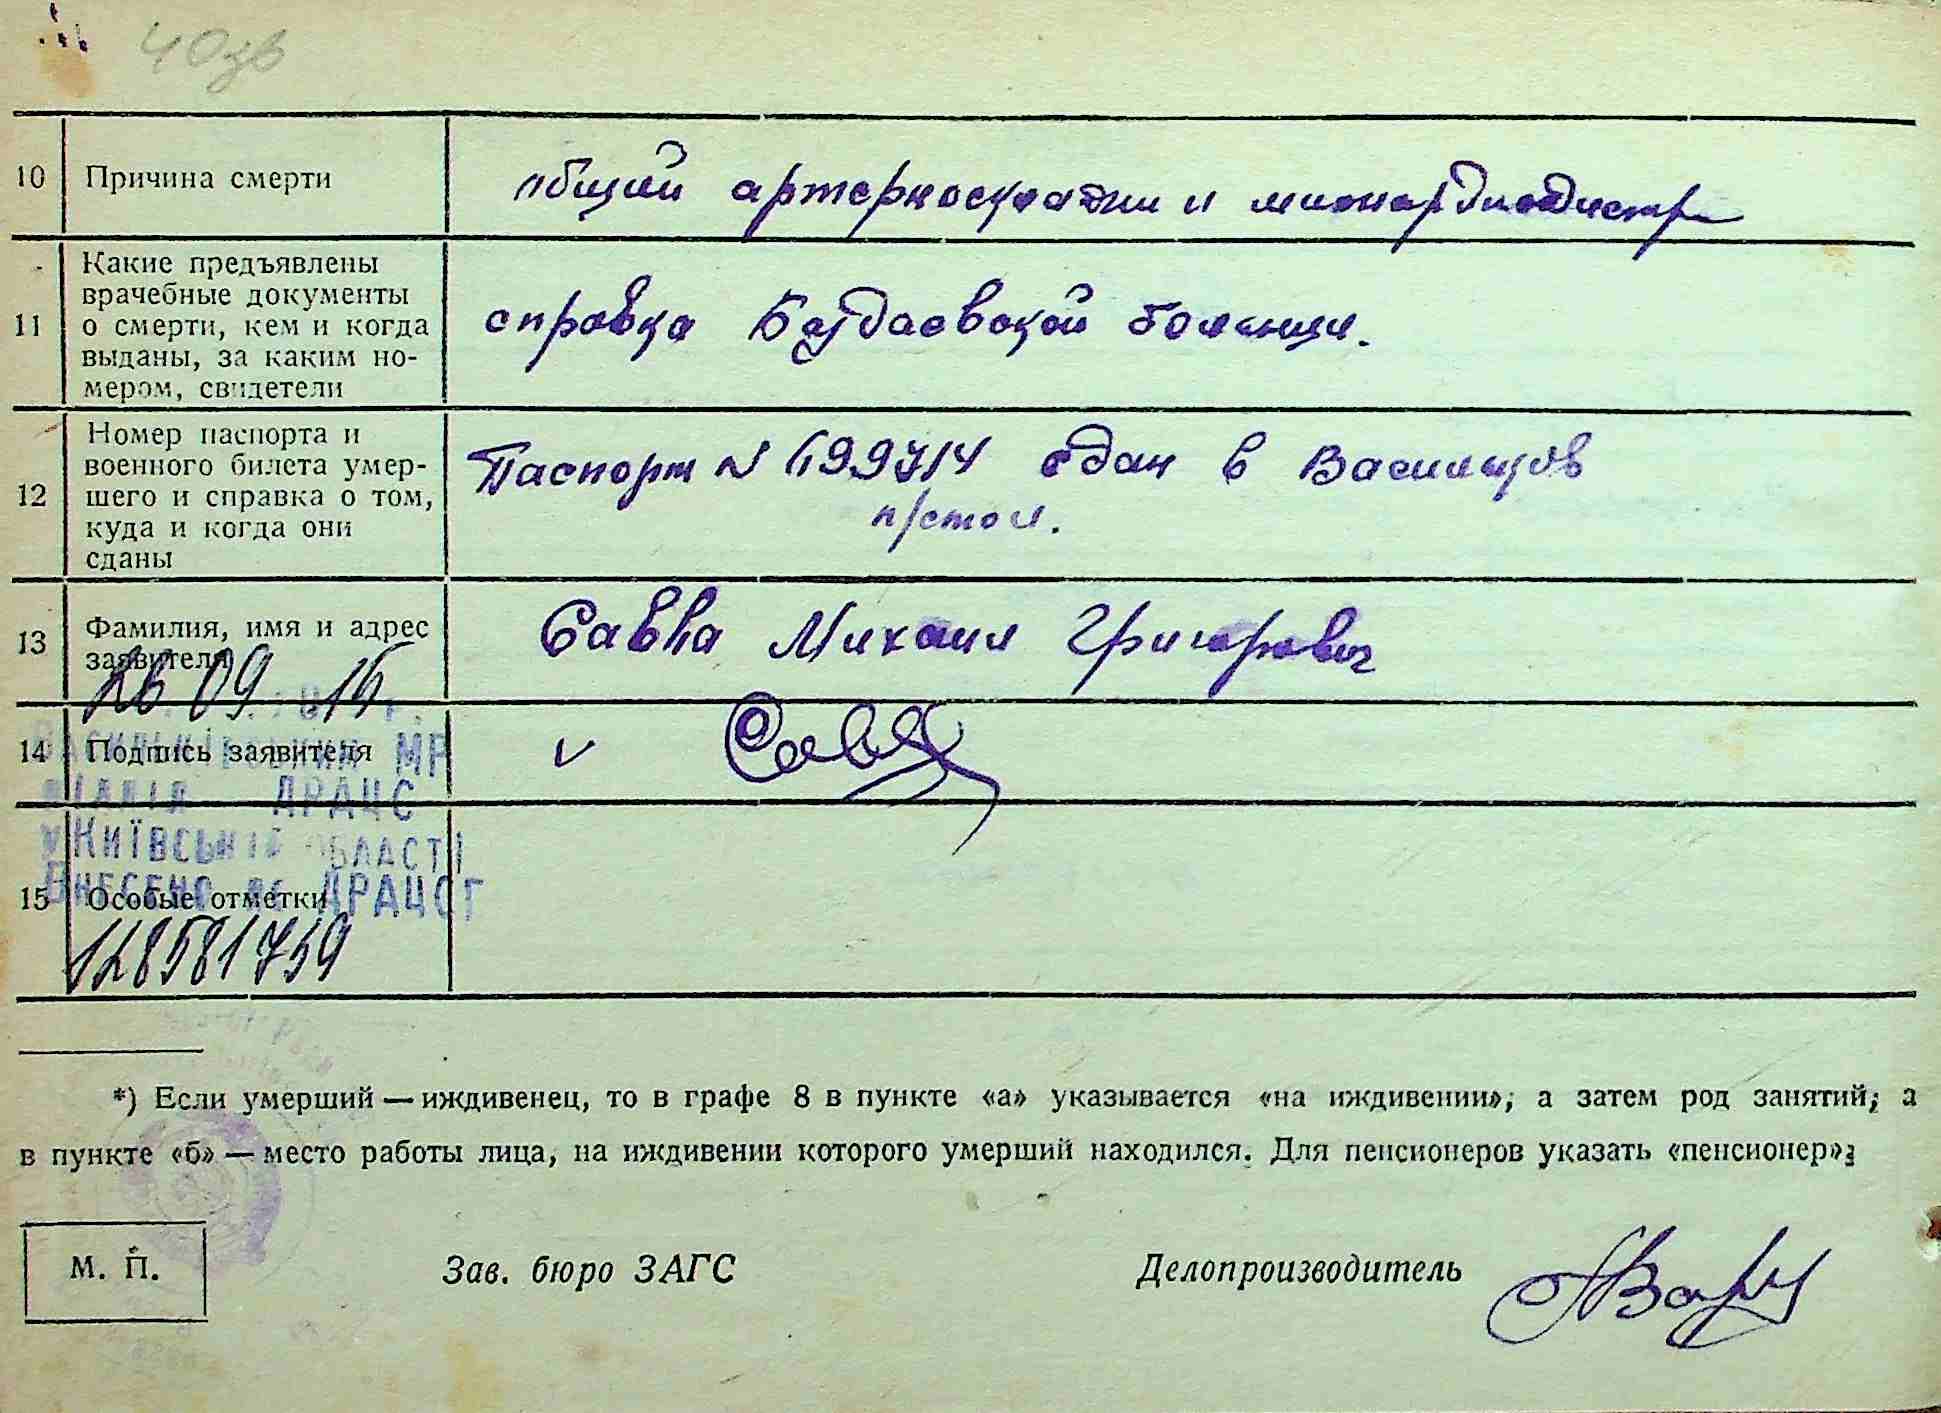 10 Причина смерти
общий артеркосклатии и миокардиодистр
11 Какие предъявлены
врачебные документы
о смерти, кем и когда
выданы, за каким но-
мером, свидетели
справка Багдаевской больници.
12 Номер паспорта и
военного билета умер-
шего и справка о том,
куда и когда они
сданы
Паспорт N 699714 сдан в
13 Фамилия, имя и адрес
заявителя
Савва Михаил Григорович
26 09 16
14 Подпись заявителя
v Савв
МР
ДРАЦС
у Київській області
Внесено до ДРАЦСГ
15 Особые отметки
128581759
*) Если умерший — иждивенец, то в графе 8 в пункте «а» указывается «на иждивении», а затем род занятий; а
в пункте «б» — место работы лица, на иждивении которого умерший находился. Для пенсионеров указать «пенсионер»;
М. П.
Зав. бюро ЗАГС
Делопроизводитель